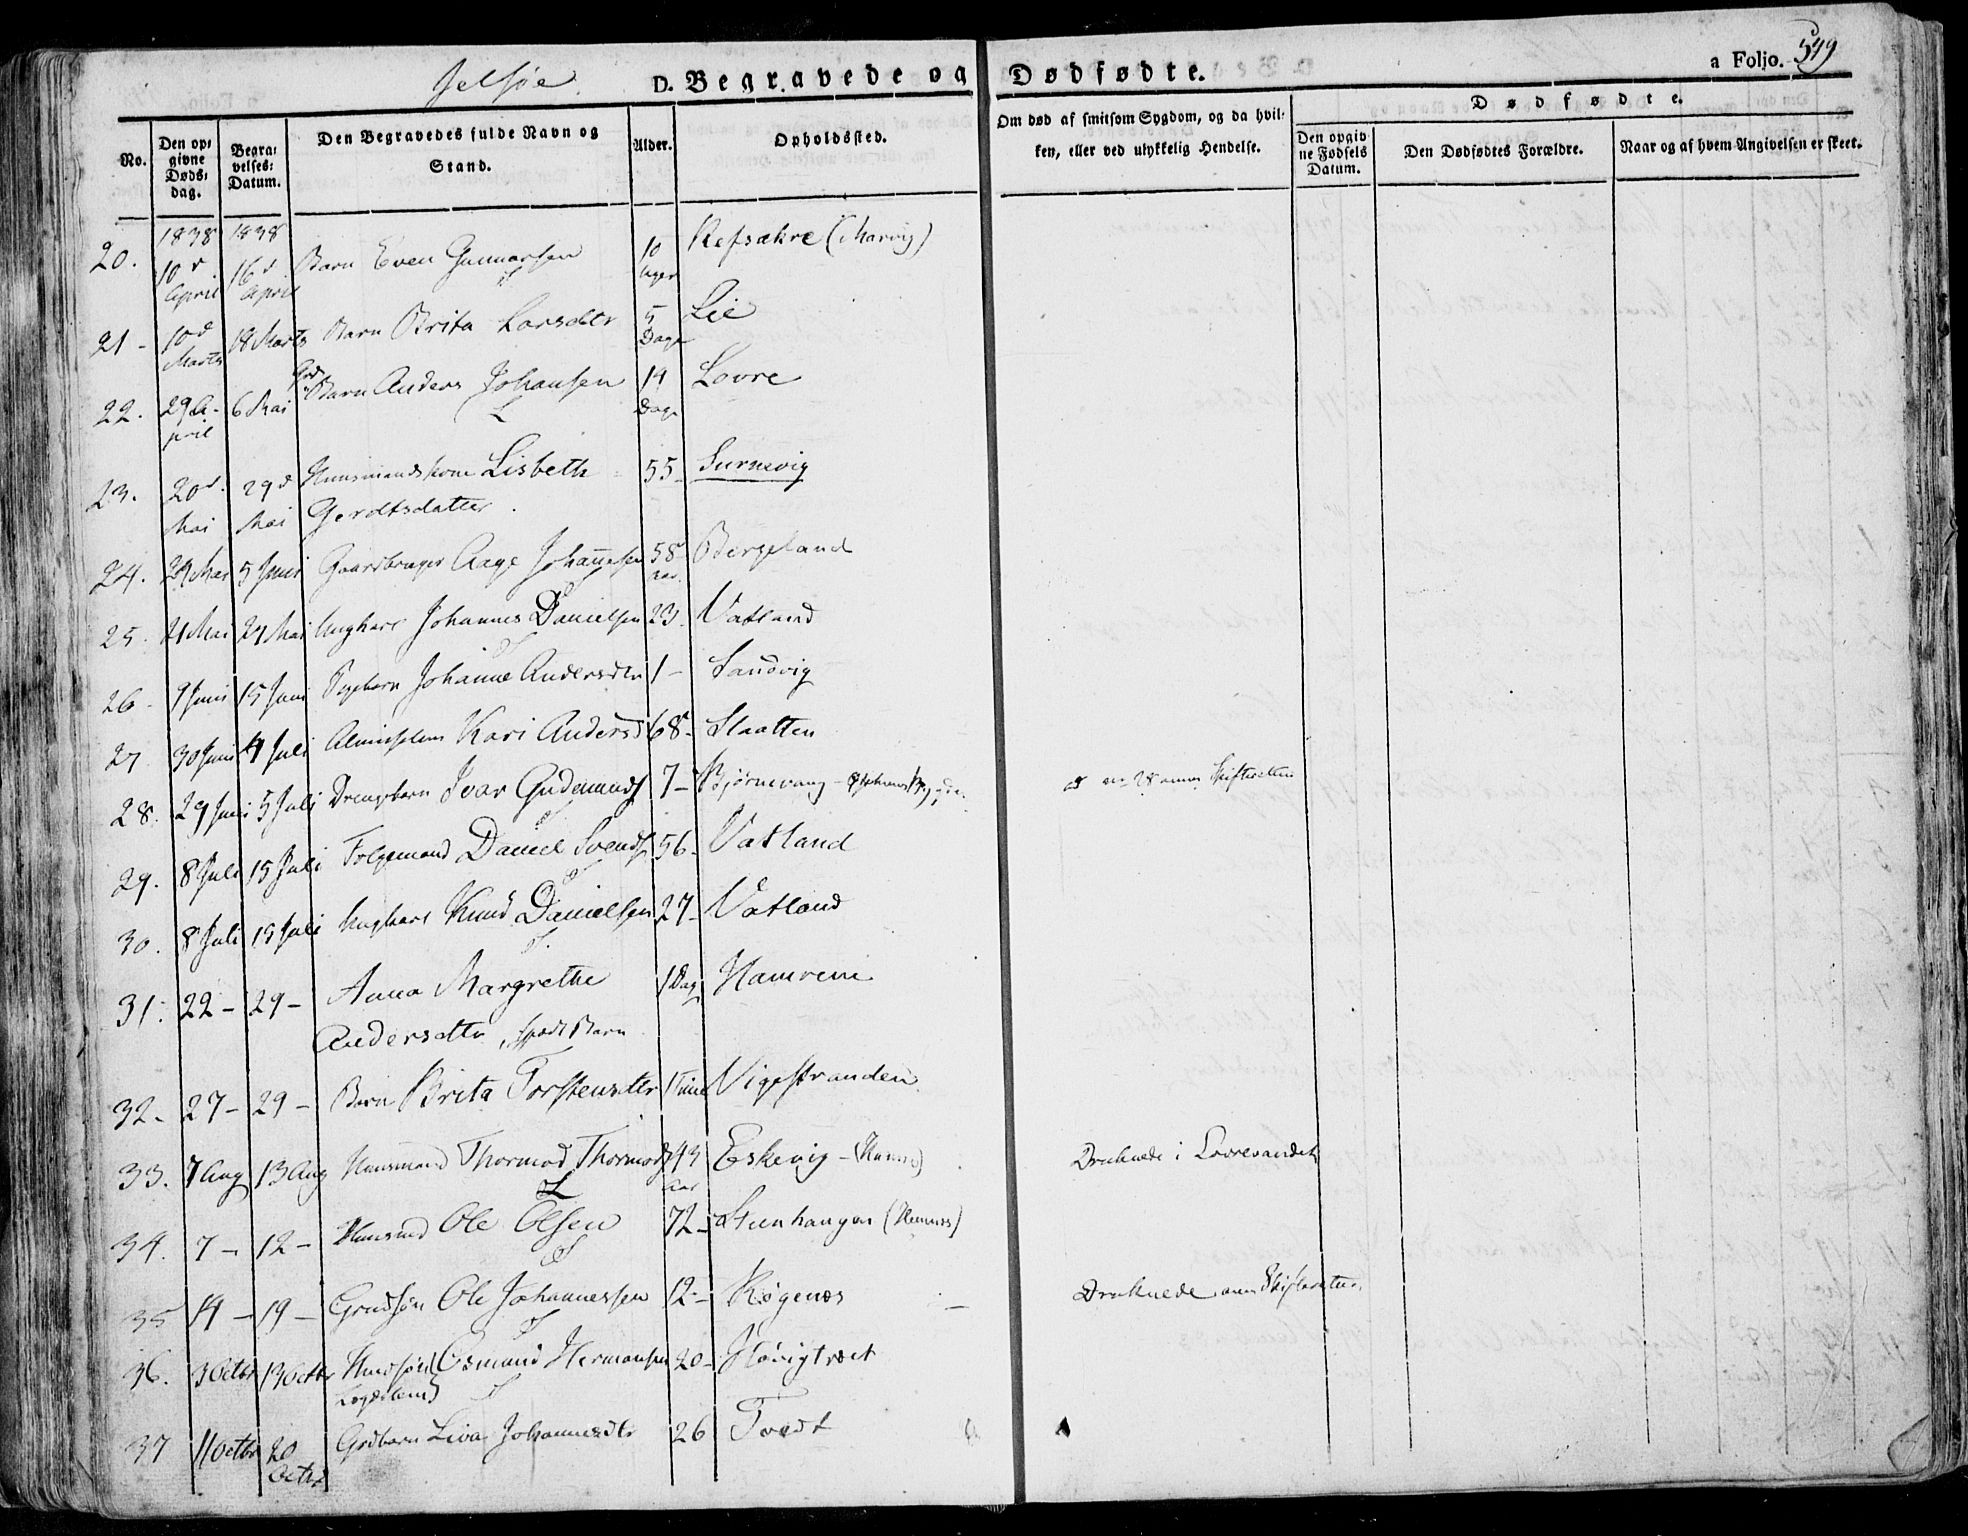 Jelsøe.
D. Begravede og Dødfødte.
a Folio. 549
No.
Den opgivne Dødsdag.
Begravelses-Datum.
Den Begravedes fulde Navn og Stand.
Alder.
Opholdssted.
Om død af smitsom Sygdom, og da hvilken, eller ved ulykkelig Hendelse.
Dødfødte.
Den opgivne Fødsels Datum.
Den Dødfødtes Forældre.
Naar og af hvem Angivelsen er skeet.
1838 1838
20. 10d April 16d April Barn Even Gunnarsen 10 uger Refsakre (Marvig)
21 - 10d Marts 18 Marts Barn Brita Larsdtr 5 Dage Lie
22. 29 April 6 Mai Grd Barn Anders Johansen 14 Dage Lovre
23. 20d Mai 29d Mai Huusmandskone Lisbeth 55 - Surnevig
Gerdtsdatter
24. 29 Mai 5 Juni Gaardbruger Aage Johannesen 58 aar Bergeland
25. 21 Mai 27 Mai Ungkarl Johannes Danielsen 23. Vatland
26 - 9 Juni 15 Juni Pigebarn Johanne Andersdtr 1 - Sandvig
27 30 Juni 4 Juli Almisselem Kari Andersd 68 - Slaatten
28. 29 Juni 5 Juli Drengebarn Ivar Gudmunds 7 - Bjørnevang -
29. 8 Juli 15 Juli Folgemand Daniel Svends 56 - Vatland
30. 8 Juli 15 Juli Ungkarl Knud Danielsen 27 - Vatland
31. 22 - 29 - Anna Margrethe 1 Dag Hamrene
Andersdttr, spædt Barn
32 - 27 - 29 - Barn Brita Torstensdtr 1 Time Vigestranden
33. 7 Aug 13 Aug Huusmand Thormod Thormods 43 aar Eskevig - Druknede i Lovrevandet
34. 7 - 12 - Huusmd Ole Olsen 72 - Steenhangen
35 14 - 19 - Grdsøn Ole Johannessen 12 - Røgenæs - Druknede
36. 3 Octbr 13 Octbr Huussøn Osmund Hermansen 20 - Høvigtræet
Lægdslem
37 11 Octbr 20 Octbr Grdbarn Liva Johannesdtr 26 Tvedt